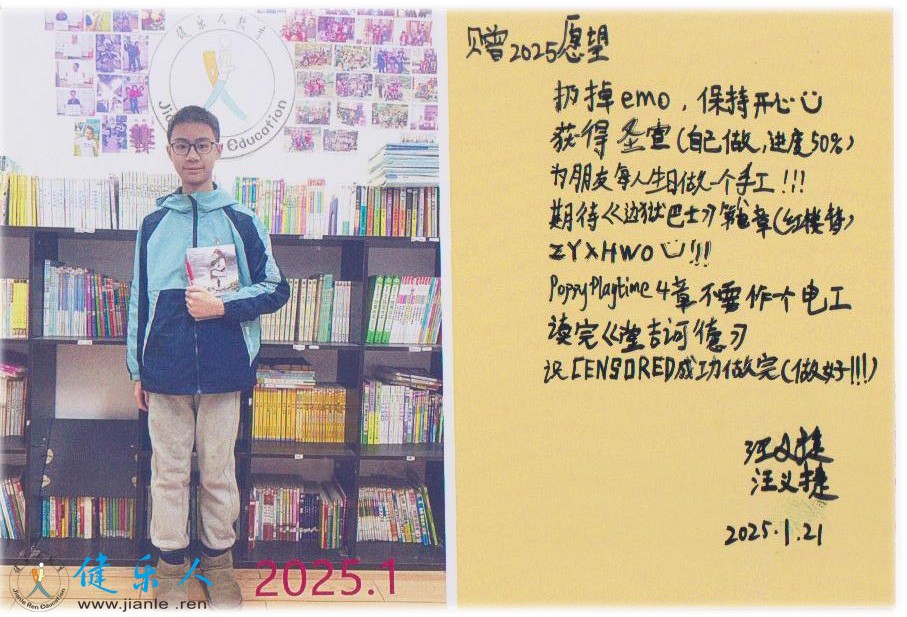 健乐人教育
Jianle Ren Education
2025.1
健乐人
www.jianle .ren
Jianle Ren Education
赠2025愿望
扔掉emo，保持开心
获得圣宣(自己做,进度50%)
为朋友每人生日做一个手工!!!
期待《边狱巴士》第章(红楼梦)
ZYXHWO !!!
PoppyPlaytime4章不要作个电工
读完《堂吉诃德》
让CENSORED成功做完(做好!!!)
汪义捷
汪义捷
2025.1.21